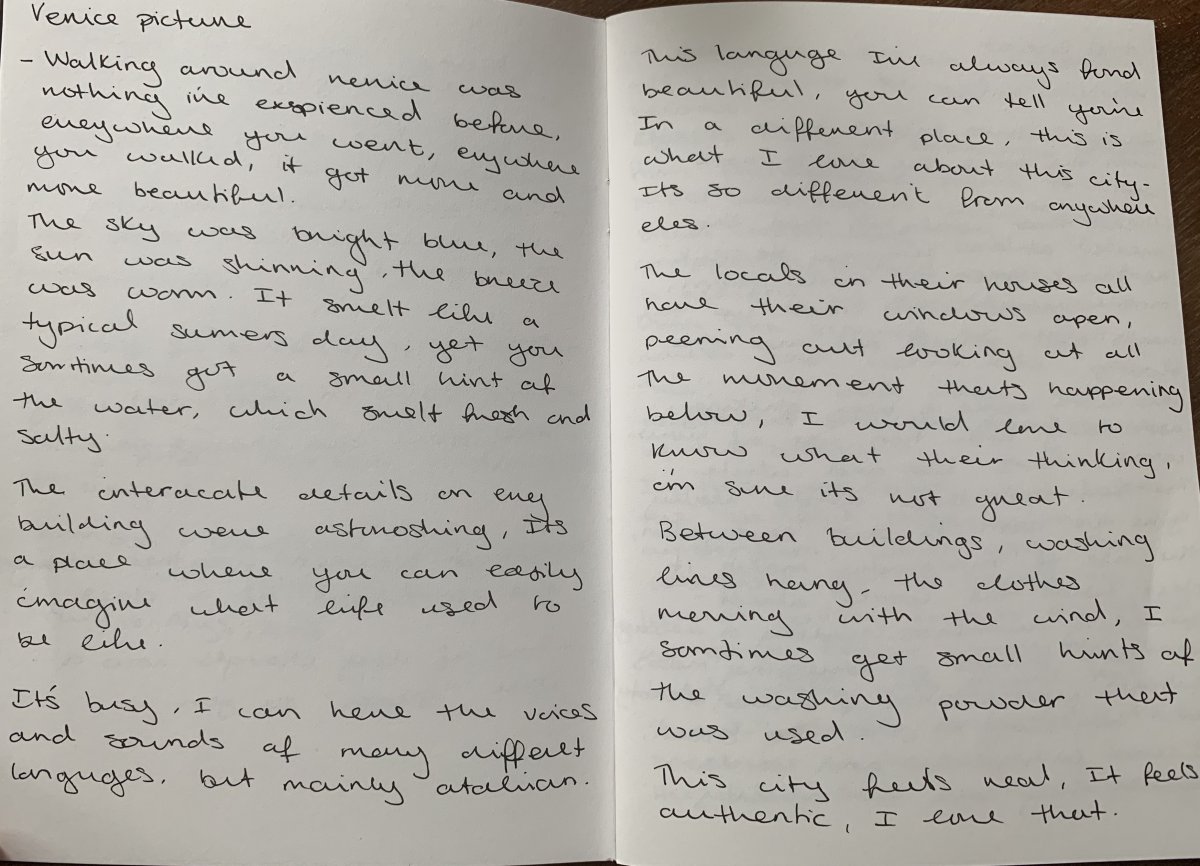 Venice picture
- Walking around venice was
nothing i've exspienced before,
eneywhere you went, enywhere
you walked, it got more and
more beautiful.
The sky was bright blue, the
sun was shinning, the breeze
was warm. It smelt like a
typical sumers day, yet you
somtimes got a small hint of
the water, which smelt fresh and
salty.
The interacate details on evey
building were astonoshing, It's
a place where you can easily
imagine what life used to
be like.
It's busy, I can here the voices
and sounds of many differet
languges, but mainly atalian.
This languge I'm always find
beautiful, you can tell you're
In a different place, this is
what I love about this city-
Its so different from anywhere
eles.
The locals in their houses all
have their windows open,
peering out looking at all
the movement thats happening
below, I would love to
know what their thinking,
i'm sure its not great.
Between buildings, washing
lines hang, the clothes
moving with the wind, I
somtimes get small hints of
the washing powder that
was used.
This city feels real, It feels
authentic, I love that.